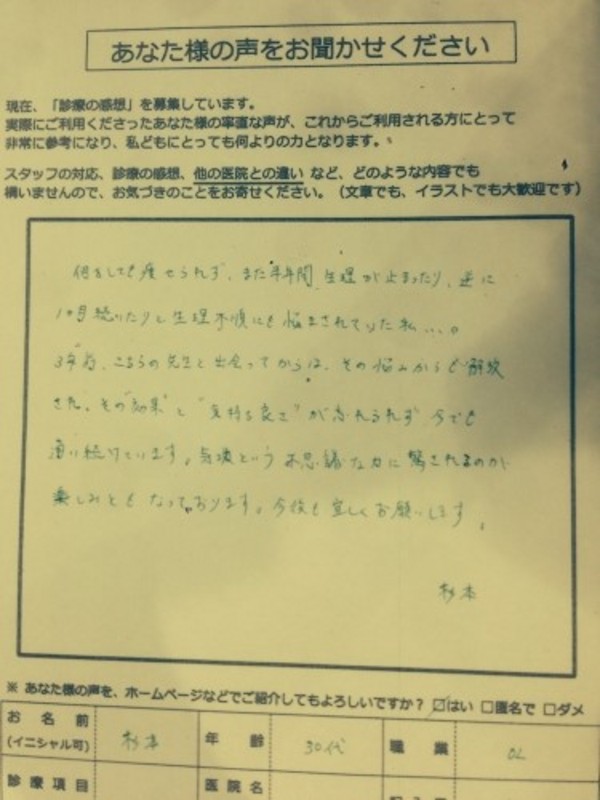 あなた様の声をお聞かせください
現在、「診療の感想」を募集しています。
実際にご利用くださったあなた様の率直な声が、これからご利用される方にとって
非常に参考になり、私どもにとっても何よりの力となります。
スタッフの対応、診療の感想、他の医院との違い など、どのような内容でも
構いませんので、お気づきのことをお寄せください。（文章でも、イラストでも大歓迎です）
何をしても痩せられず、また半年間 生理が止まったり、逆に
1ヶ月続いたりと生理不順にも悩まされていた私...。
3年前、こちらの先生と出会ってからは、その悩みからも解放
され、その"効果"と"気持ち良さ"が忘れられず 今でも
通い続けています。気波という不思議な力に驚されるのが
楽しみとも なっております。今後も宜しくお願いします。
杉本
※ あなた様の声を、ホームページなどでご紹介してもよろしいですか？ ☑はい □匿名で □ダメ
お名前 杉本 年齢 30代 職業 OL
(イニシャル可)
診療項目 医院名